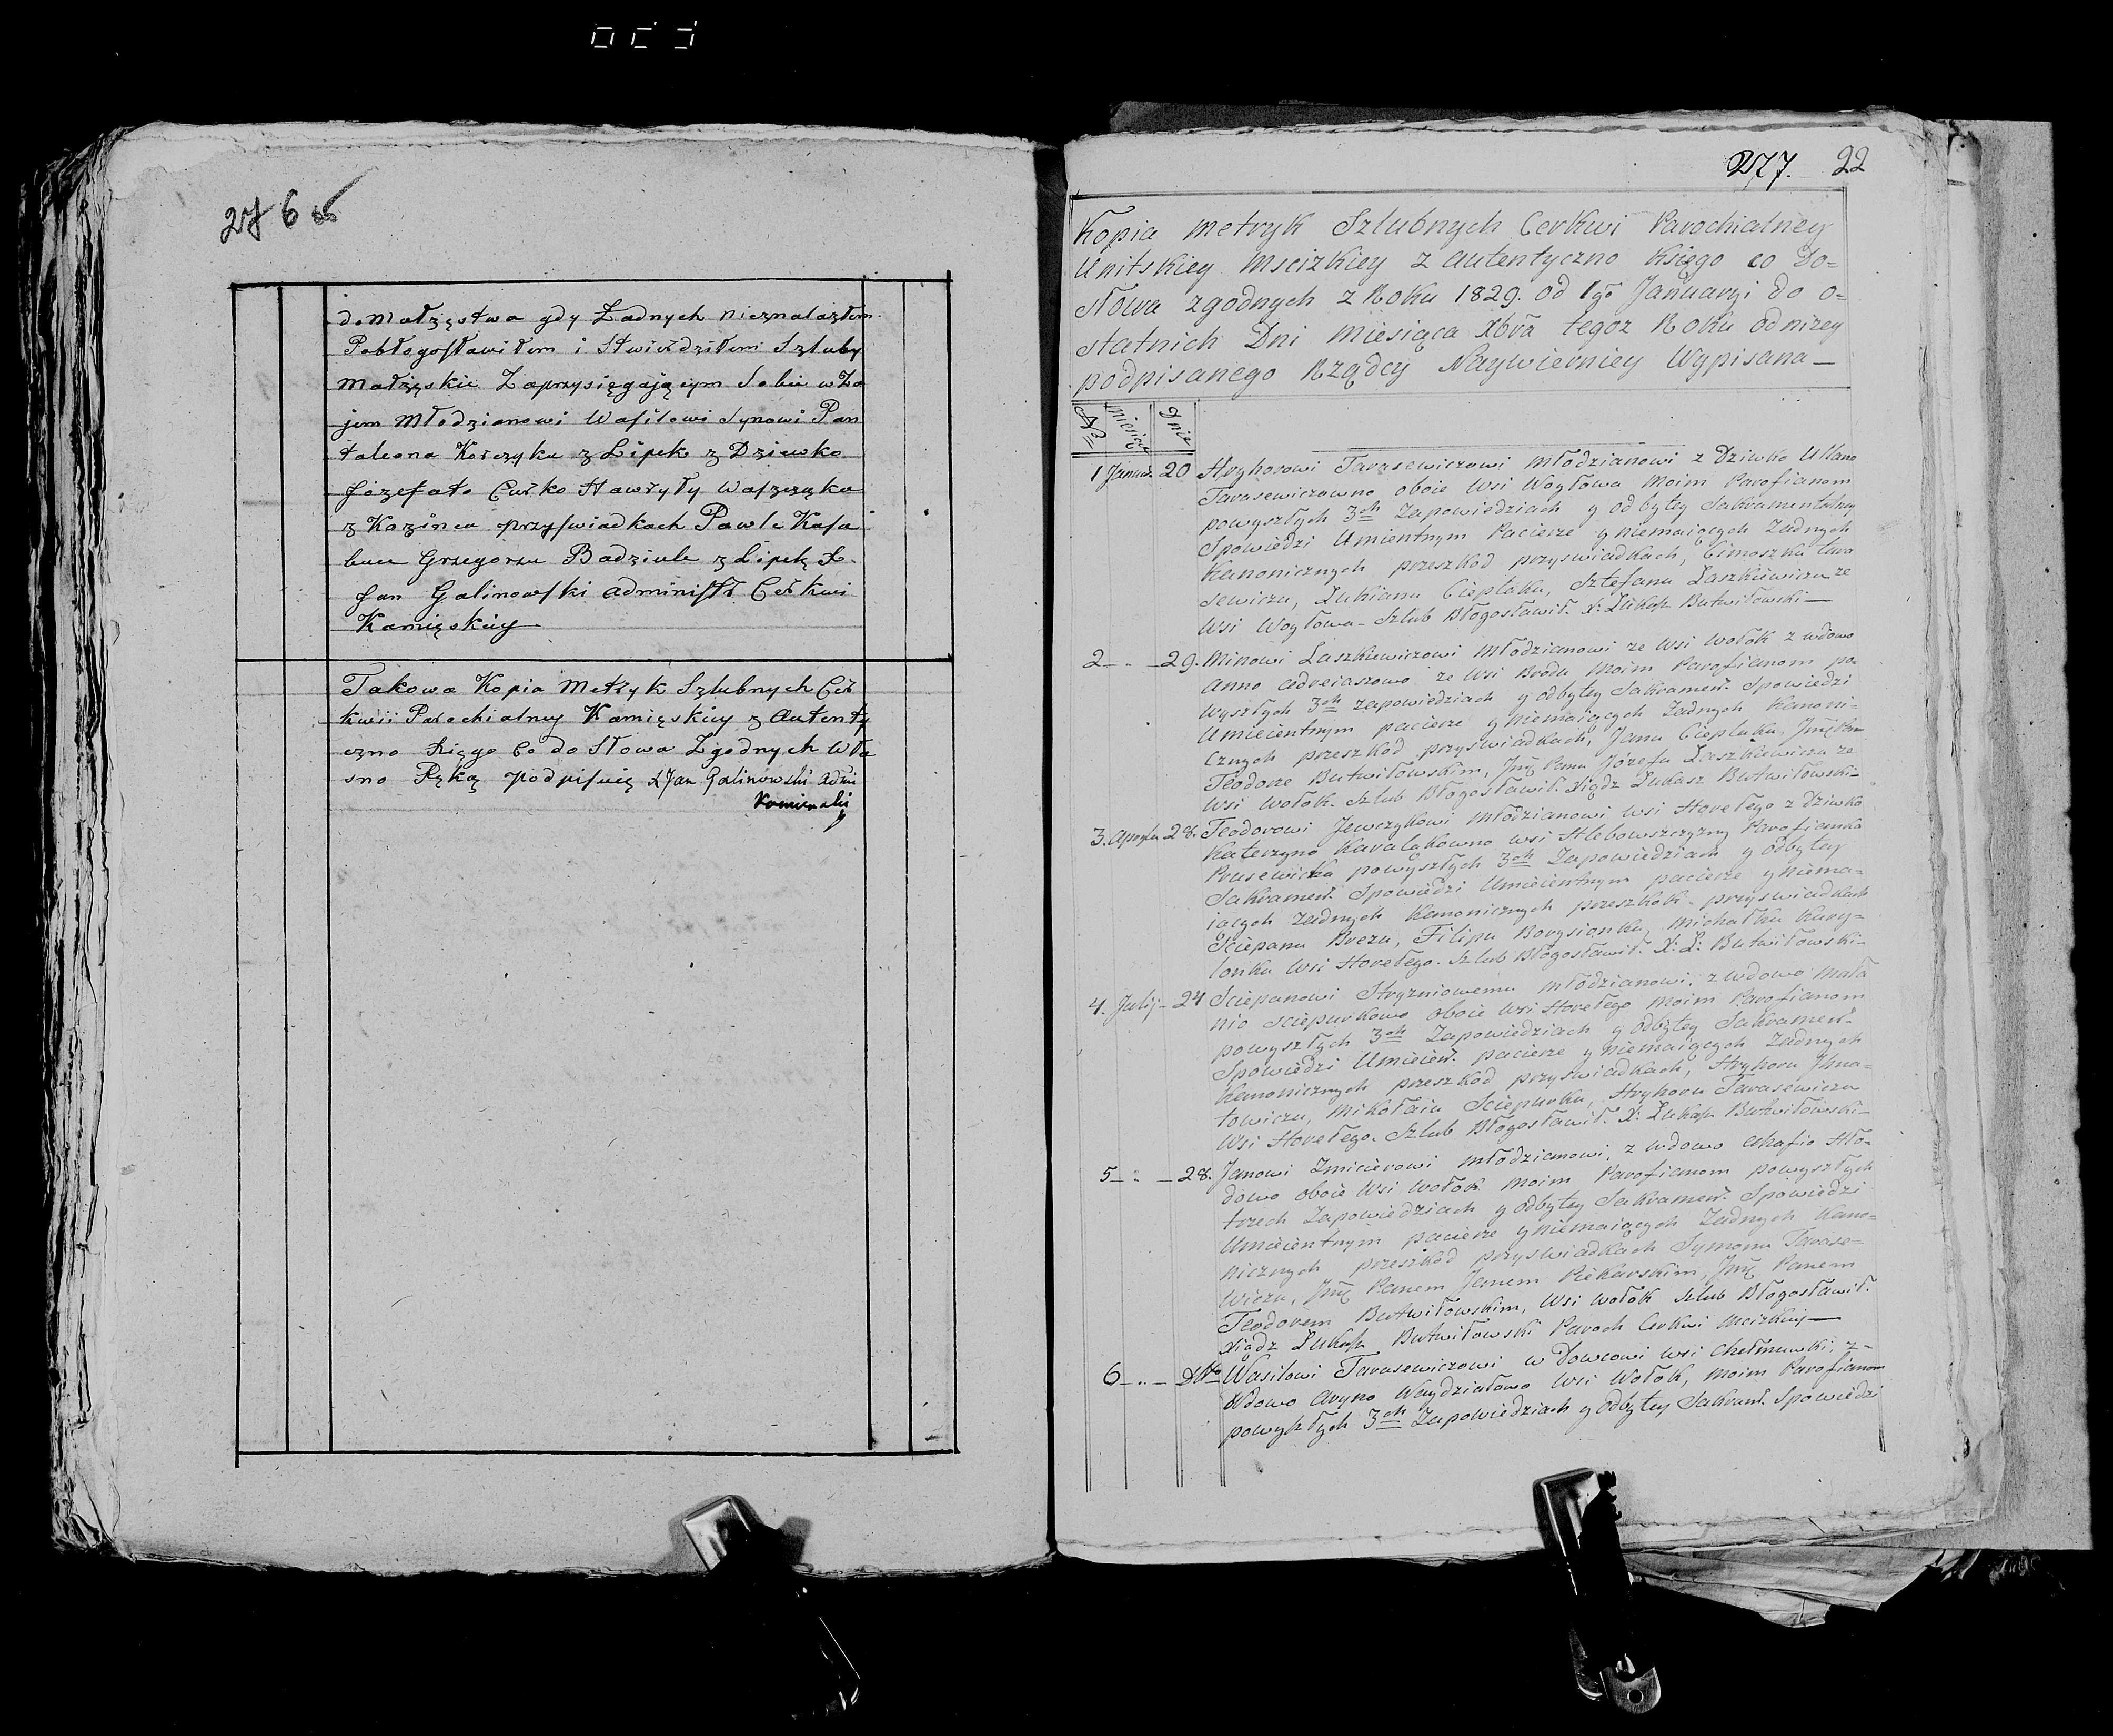 276 об
do Małżęstwa gdy Żadnych nieznalazłem
Pobłogosławiłem i Stwierdziłem Szluby
Małżęskie Zaprzysięgającym Sobie wZa
jem Młodzianowi Wasilowi Synowi Pan
taleona Korczyka z Lipek z Dziewko
Józefato Curko Hawryły Waszczyka
z Kozińca przyswiadkach Pawle Kasa
buce Grzegorzu Badziule z Lipek X.
Jan Galinowski Administr Cerkwi
Kamięskiey
Takowa Kopia Metryk Szlubnych Cer
kwii Parochialney Kamięskiey z Autenty
czno Xięgo Co do Słowa Zgodnych Wła
sno Ręką podpisuię X Jan Galinowski Adm
Kamienski
277. 22
Kopia Metryk Szlubnych Cerkwi Parochialney
Unitskiey Mscizkiey z autentyczno Księgo co Do-
Słowa zgodnych z Roku 1829. od 1go Januaryi do o-
statnich Dni Miesiąca Xbra tegoz Roku odnizey
podpisanego Rządcy Naywierniey Wypisana —
No miesiąc Dnie
1 Januar. 20 Hryhorowi Tarasewiczowi Młodzianowi z Dziwko Ulano
Tarasewiczowno oboie Wsi Woytowa Moim Parofianom
powyszłych 3ch Zapowiedziach y odbytey Sakramentalney
Spowiedzi Umientnym Pacierze y niemaiących Zadnych
Kanonicznych przeszkod przyswiadkach, Cimoszku Tara
sewiczu, Łukianu Cieplaku, Sztefanu Łaszkiewiczu ze
Wsi Woytowa - Szlub Błogosławił. X: Łukasz Butwiłowski —
2 — .. — 29. Minowi Łaszkiewiczowi Młodzianowi ze Wsi Wołok z wdowo
Anno ze Wsi Brodu Moim Parofianom po-
wyszłych 3ch zapowiedziach y odbytey Sakramen. Spowiedzi
Umiecientnym pacierze y niemaiących Zadnych Kanoni-
cznych przeszkod przyswiadkach, Jana Cieplaku, Jmć Pan
Teodore Butwiłowskim, Jmć Panu Józefu Łaszkiewiczu ze
Wsi Wołok. Szlub Błogosławił. Xiądz Łukasz Butwiłowski —
3. Apryla 28. Teodorowi Jewczykowi Młodzianowi wsi Horełego z Dziwko
Katerzyno Karalakowno wsi Hlebowszczyzny Parofianka
powyszłych 3ch Zapowiedziach y odbytey
Sakramen. Spowiedzi Umiecientnym pacierze y niema-
iących Zadnych Kanonicznych przeszkok. przyswiadkach
Sciepanu Brezu, Filipu Borysionku, Michałku Kury-
lonku Wsi Horełego. Szlub Błogosławił. X: Ł: Butwiłowski —
4. Julij — 24 Sciepanowi Młodzianowi, z wdowo Mała
nio Sciepurkowo oboie Wsi Horełego Moim Parofianom
powyszłych 3ch Zapowiedziach y odbytey Sakramen.
Spowiedzi Umiecien. pacierze y niemaiących Zadnych
Kanonicznych przeszkod przyswiadkach, Hryhoru Jhna-
towiczu, Mikołaiu Sciepurku, Hryhoru Tarasewiczu
Wsi Horełego. Szlub Błogosławił. X: Łukasz Butwiłowski —
5 — .. — 28. Janowi Zmicierowi Młodzianowi, z wdowo Ahafio Hło-
dowo oboie Wsi Wołok Moim Parofianom powyszłych
trzech Zapowiedziach y odbytey Sakramen. Spowiedzi
Umiecientnym pacierze y niemaiących Zadnych Kano-
nicznych przeszkod przyswiadkach Symonu Tarase-
wiczu, Jmć Panem Janem Piekarskim, Jmć Panem
Teodorem Butwiłowskim, Wsi Wołok Szlub Błogosławił.
Xiądz Łukasz Butwiłowski Paroch Cerkwi Mscizkiey —
6 — .. — Dtto Wasilowi Tarasewiczowi w Dowcowi wsi z —
Wdowo Aryno Wsi Wołok, Moim Parofianom
powyszłych 3ch Zapowiedziach y Odbytey Sakram. Spowiedzi